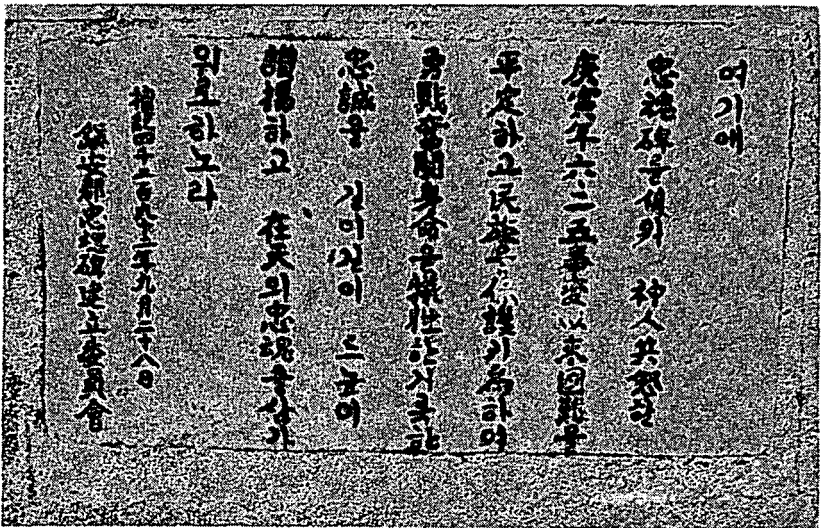 여기에
忠魂碑를 세워 神人共怒할
庚寅年六二五事變以來國難을
平定하고民族을保護키爲하여
勇戰奮鬪身命을犧牲한지극한
忠誠을 길이길이 드높여
讚揚하고 在天의忠魂을삼가
위로하노라
檀紀四千二百九十三年九月二十八日
山郡忠魂碑建立委員會